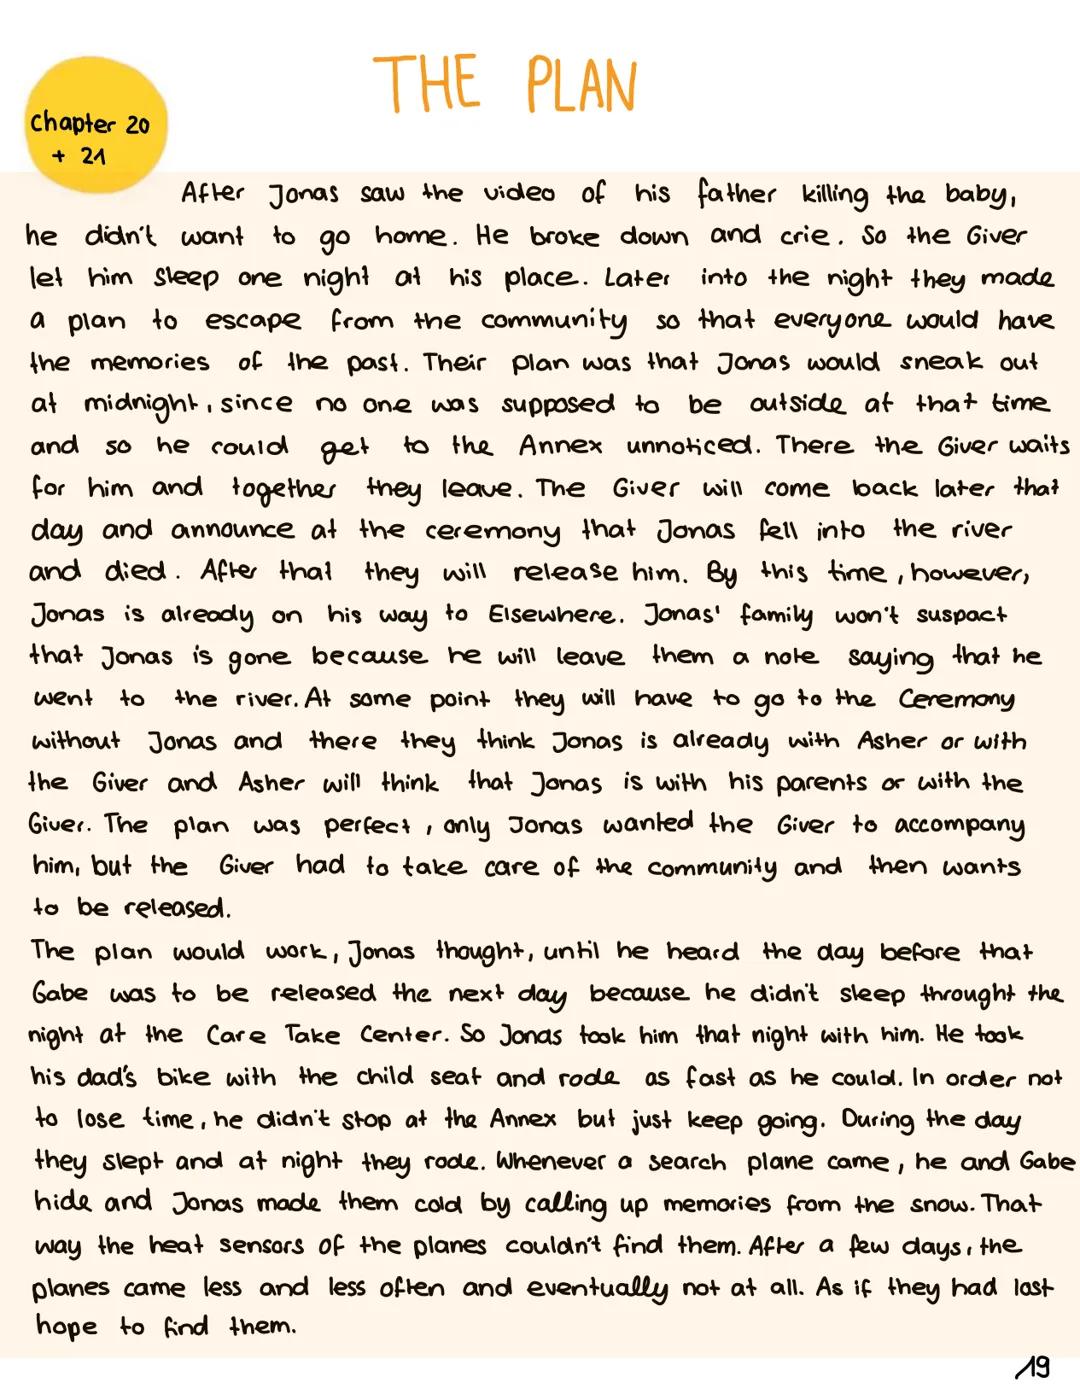 THE PLAN
Chapter 20
+ 21
After Jonas saw the video of his father killing the baby,
he didn't want to go home. He broke down and crie. So the Giver
let him sleep one night at his place. Later into the night they made
a plan to escape from the community so that everyone would have
the memories of the past. Their plan was that Jonas would sneak out
at midnight, since no one was supposed to be outside at that time
and so he could get to the Annex unnoticed. There the Giver waits
for him and together they leave. The Giver will come back later that
day and announce at the ceremony that Jonas fell into the river
and died. After that they will release him. By this time, however,
Jonas is already on his way to Elsewhere. Jonas' family won't suspact
that Jonas is gone because he will leave them a note saying that he
went to the river. At some point they will have to go to the Ceremony
without Jonas and there they think Jonas is already with Asher or with
the Giver and Asher will think that Jonas is with his parents or with the
Giver. The plan was perfect, only Jonas wanted the Giver to accompany
him, but the Giver had to take care of the community and then wants
to be released.
The plan would work, Jonas thought, until he heard the day before that
Gabe was to be released the next day because he didn't sleep throught the
night at the Care Take Center. So Jonas took him that night with him. He took
his dad's bike with the child seat and rode as fast as he could. In order not
to lose time, he didn't stop at the Annex but just keep going. During the day
they slept and at night they rode. Whenever a search plane came, he and Gabe
hide and Jonas made them cold by calling up memories from the snow. That
way the heat sensors of the planes couldn't find them. After a few days, the
planes came less and less often and eventually not at all. As if they had lost
hope to find them.
19